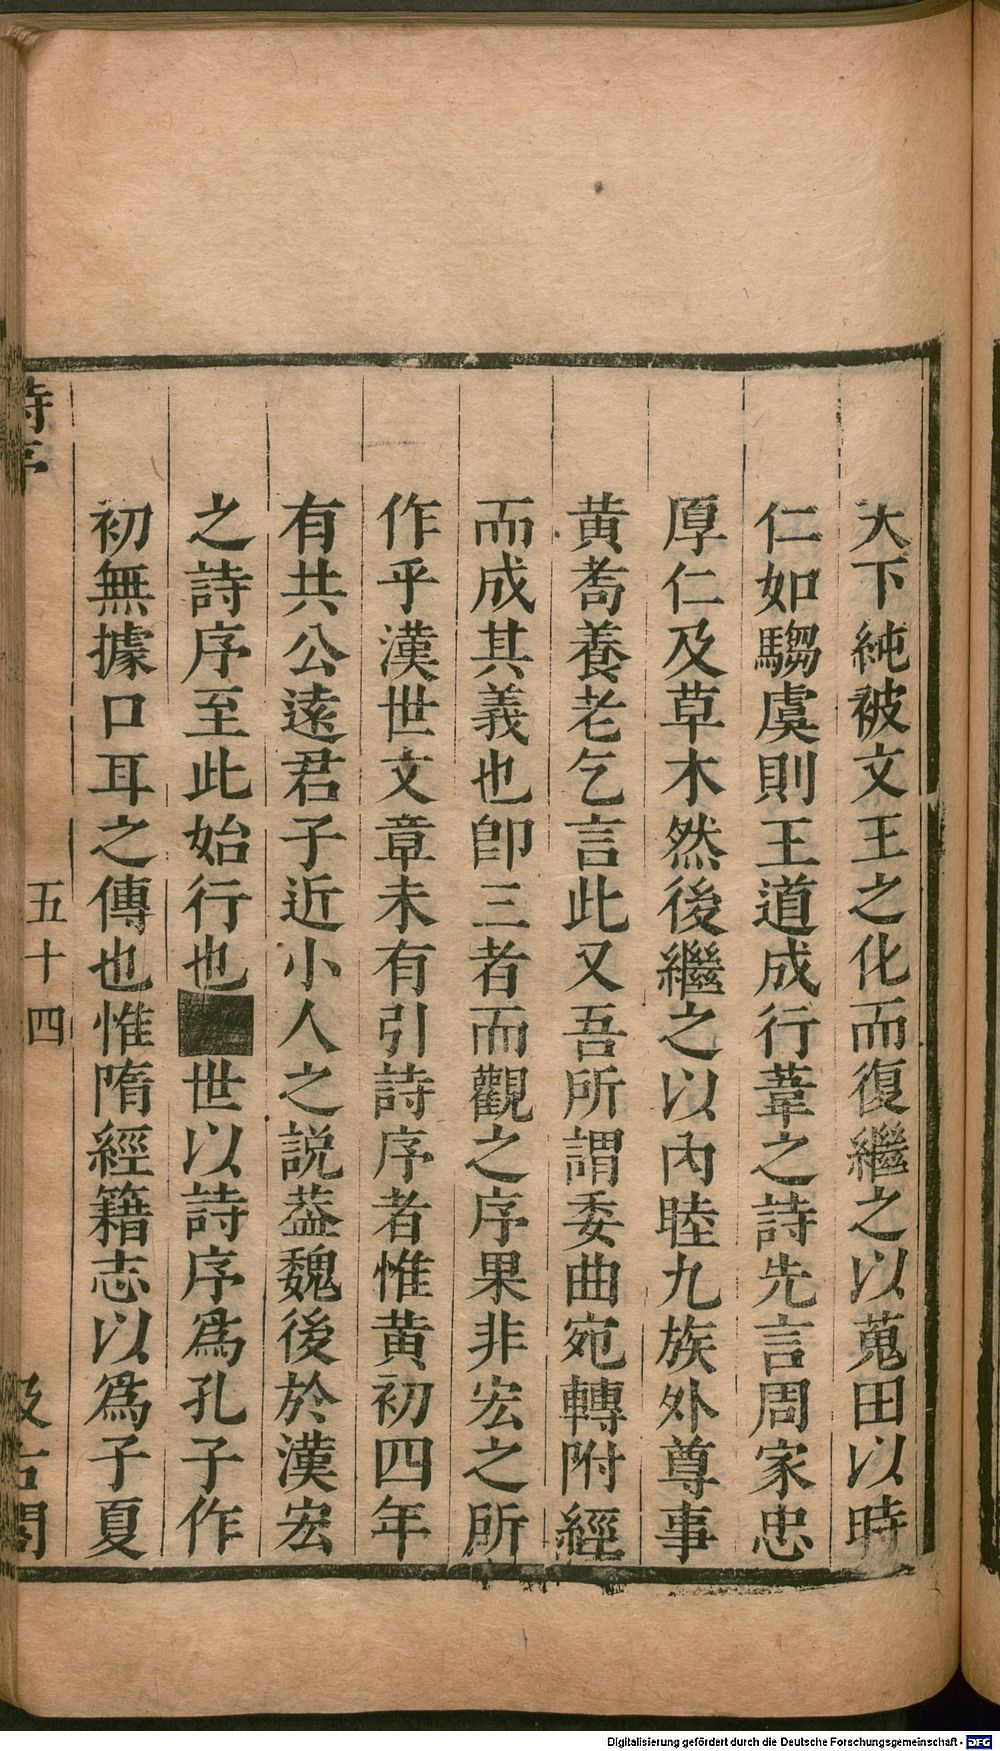 天下純被文王之化而復繼之以蒐田以時
仁如騶虞則王道成行葦之詩先言周家忠
厚仁及草木然後繼之以內睦九族外尊事
黃耇養老乞言此又吾所謂委曲宛轉附經
而成其義也卽三者而觀之序果非宏之所
作乎漢世文章未有引詩序者惟黃初四年
有共公遠君子近小人之說葢魏後於漢宏
之詩序至此始行也世以詩序爲孔子作
初無據口耳之傳也惟隋經籍志以爲子夏
詩序
五十四
汲古閣
Digitalisierung gefördert durch die Deutsche Forschungsgemeinschaft - DFG